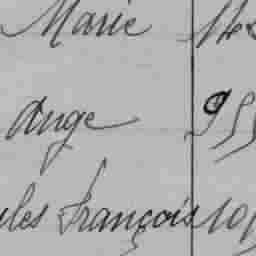 Marie 148
Ange 955
ules François 10